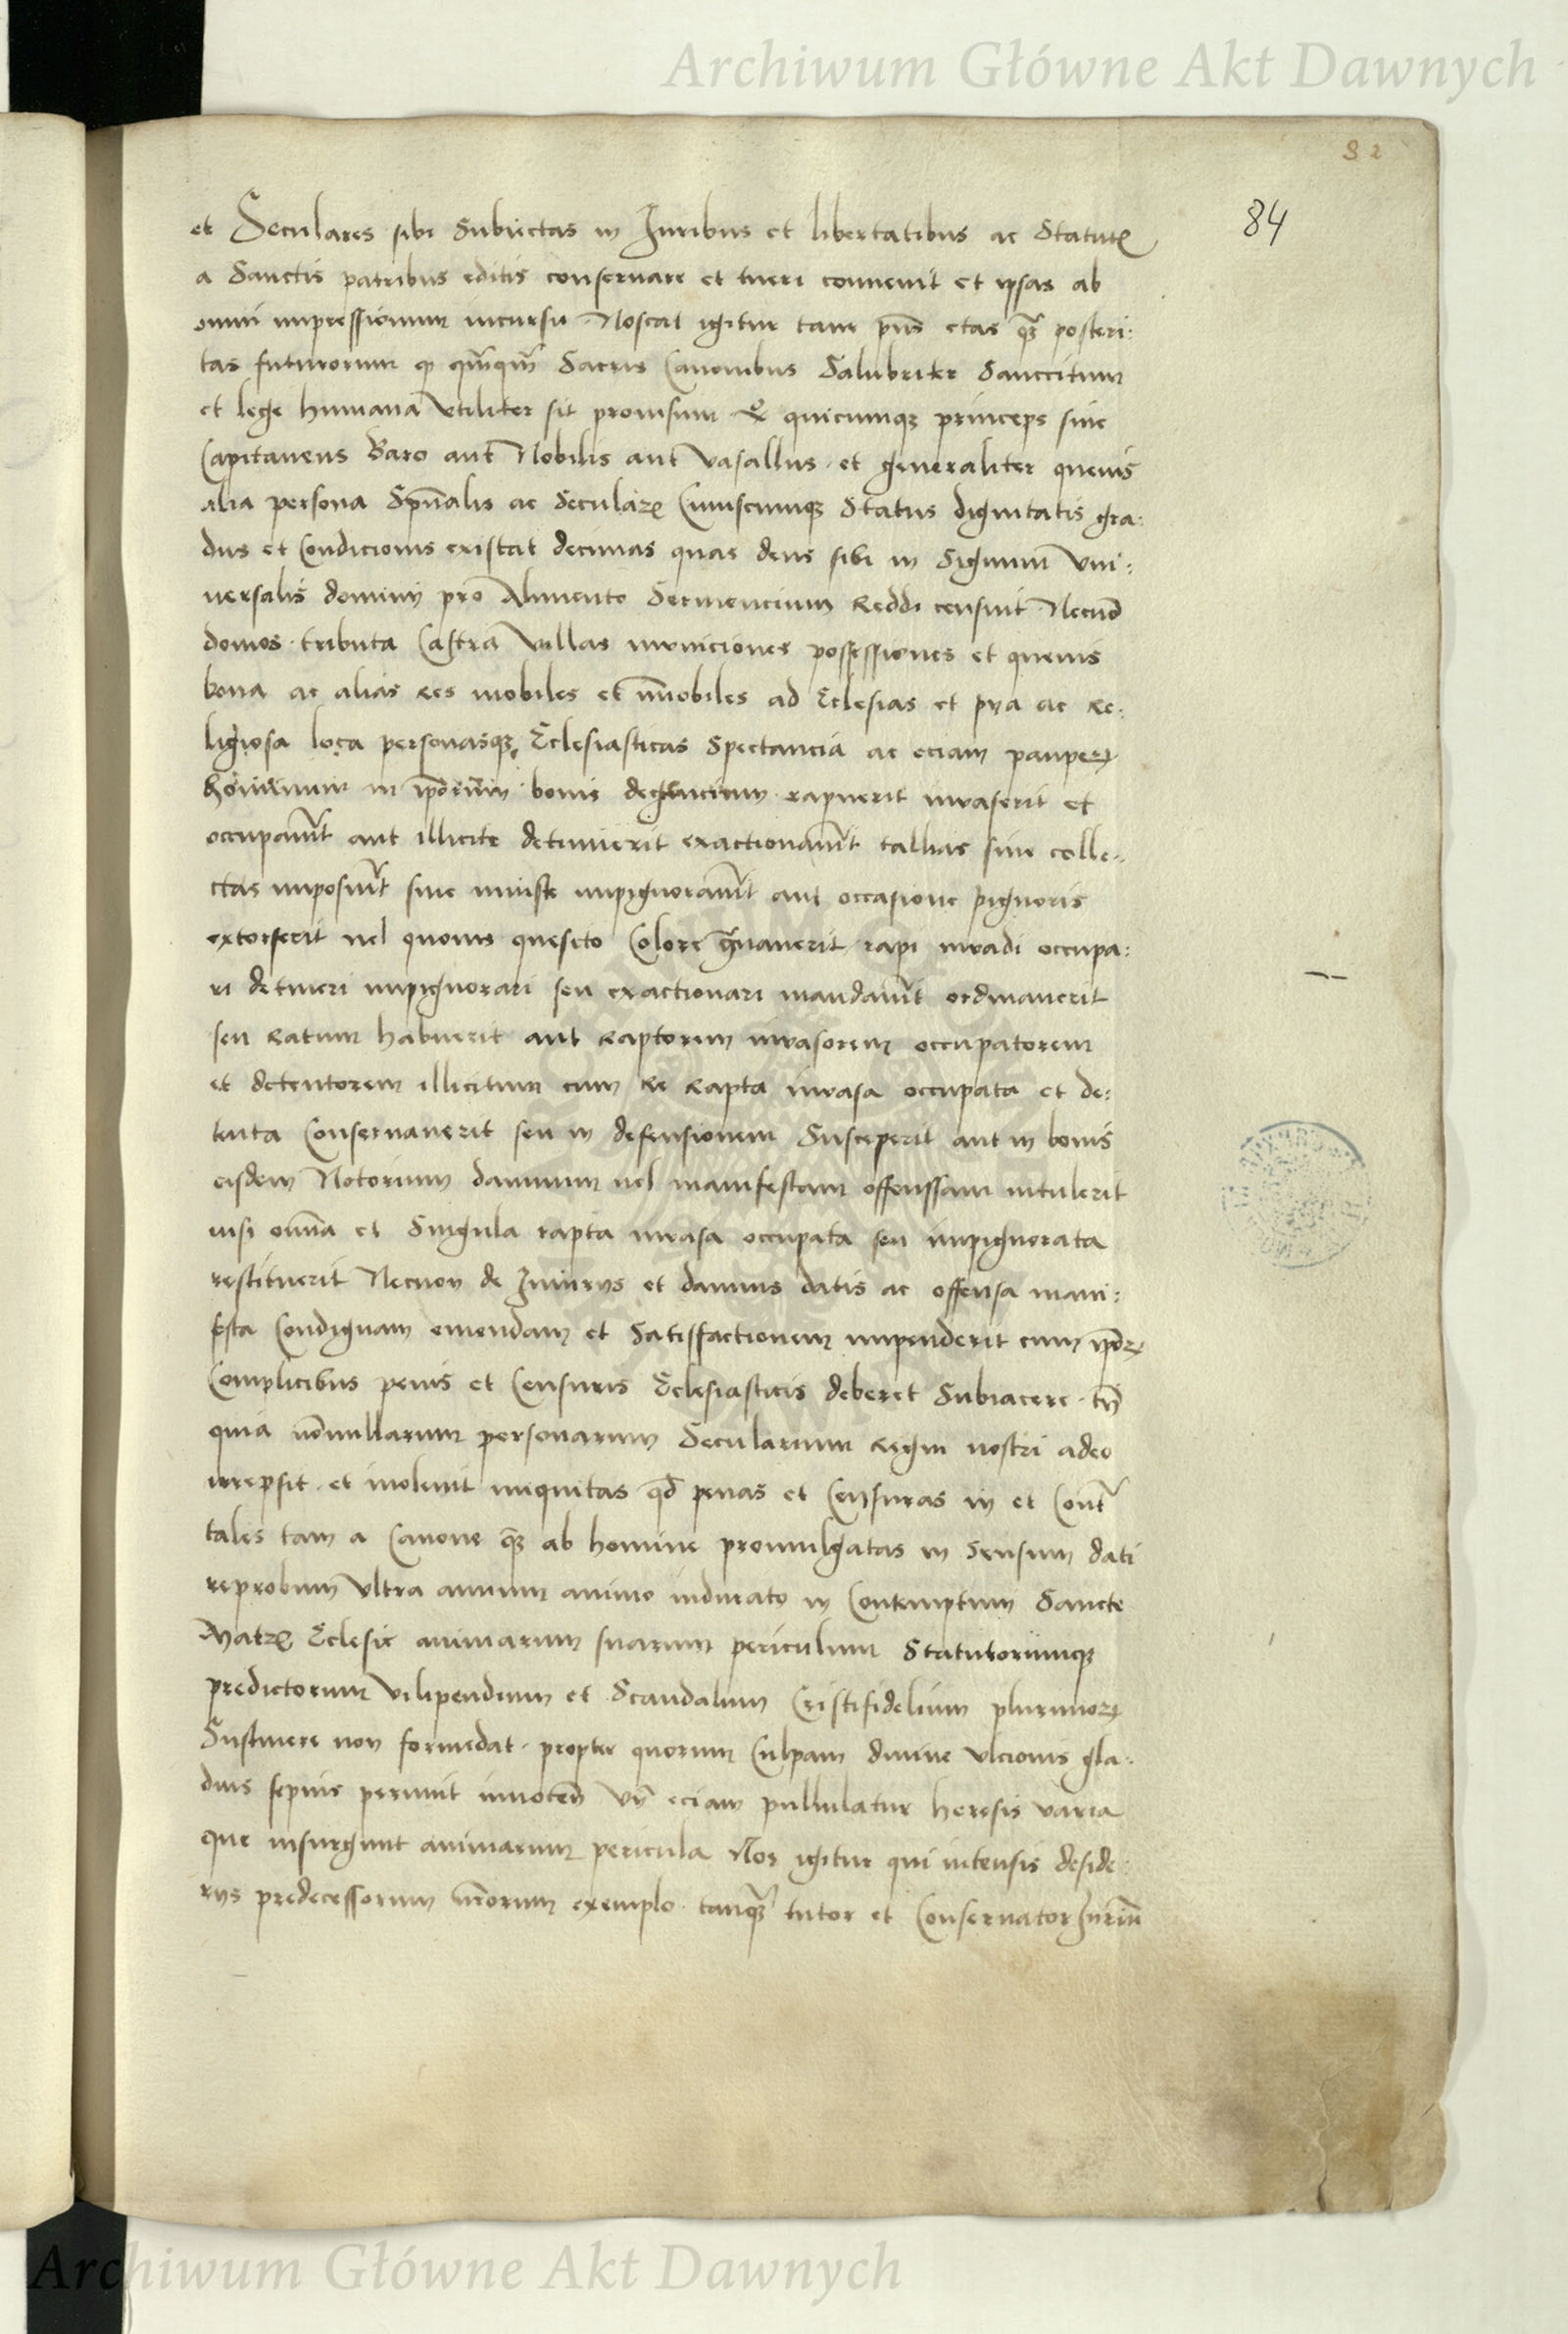 Archiwum Główne Akt Dawnych
82
84
et Seculares sibi Subiectas in Iuribus et libertatibus ac Statutꝭ
a Sanctis patribus editis conseruare et tueri conuenit et ipsas ab
omni impressionum incursu. Noscat igitur tam pn̄s etas qꝫ posteri:
tas futurorum ꝙ qm̄qm̄ Sacris Canonibus Salubriter Sanccitum
et lege humana vtiliter sit prouisum ꝙ quicumqꝫ princeps siue
Capitaneus Baro aut Nobilis aut vasallus. et generaliter queuis
alia persona Spūalis ac Secularꝭ Cuiuscumqꝫ Status dignitatis gra:
dus et Condicionis existat decimas quas deus sibi in Signum Vni:
uersalis dominij pro Alimento Seruiencium reddi censuit. Necnō
domos. tributa Castra villas municiones possessiones et queuis
bona ac alias res mobiles et īmobiles ad Eclesias et pia ac Re:
ligiosa loca personasqꝫ Eclesiasticas Spectancia ac eciam pauperꝝ
hominum in ip̄orum bonis degencium rapuerit inuaserit et
occupauit aut illicite detinuerit exactionauit tallias siue colle:
ctas imposuit siue iniuste impignorauit aut occasione pignoris
extorserit uel quouis quesito Colore grauauerit rapi inuadi occupa:
ri detineri impignorari seu exactionari mandauit ordinauerit
seu ratum habuerit aut raptorem inuasorem occupatorem
et detentorem illicitum cum re rapta inuasa occupata et de:
tenta Conseruauerit seu in defensionem Susceperit aut in bonis
eisdem Notorium damnum uel manifestam offenssam intulerit
nisi om̄ia et Singula rapta inuasa occupata seu impignorata
restituerit Necnon de Iniurijs et damnis datis ac offensa mani:
festa Condignam emendam et Satisffactionem impenderit cum ip̄orꝝ
Complicibus penis et Censuris Eclesiasticis deberet Subiacere. tn̄
quia nōnullarum personarum Secularium Regni nostri adeo
irrepsit. et inoleuit iniquitas qd̄ penas et Censuras in et Contra
tales tam a Canone qꝫ ab homine promulgatas in Sensum dati
reprobum vltra annum animo indurato in Contemptum Sancte
Matrꝭ Eclesie animarum suarum periculum Statutorumqꝫ
predictorum vilipendium et Scandalum Cristifidelium plurimorꝝ
Sustinere non formidat. propter quorum Culpam diuine vlcionis gla:
dius sepius perimit innocen̄ Vn̄ eciam pullulatur heresis varia
que insurgunt animarum pericula Nos igitur qui intensis deside:
rijs predecessorum nr̄orum exemplo. tanqꝫ tutor et Conseruator Iurium
Archiwum Główne Akt Dawnych